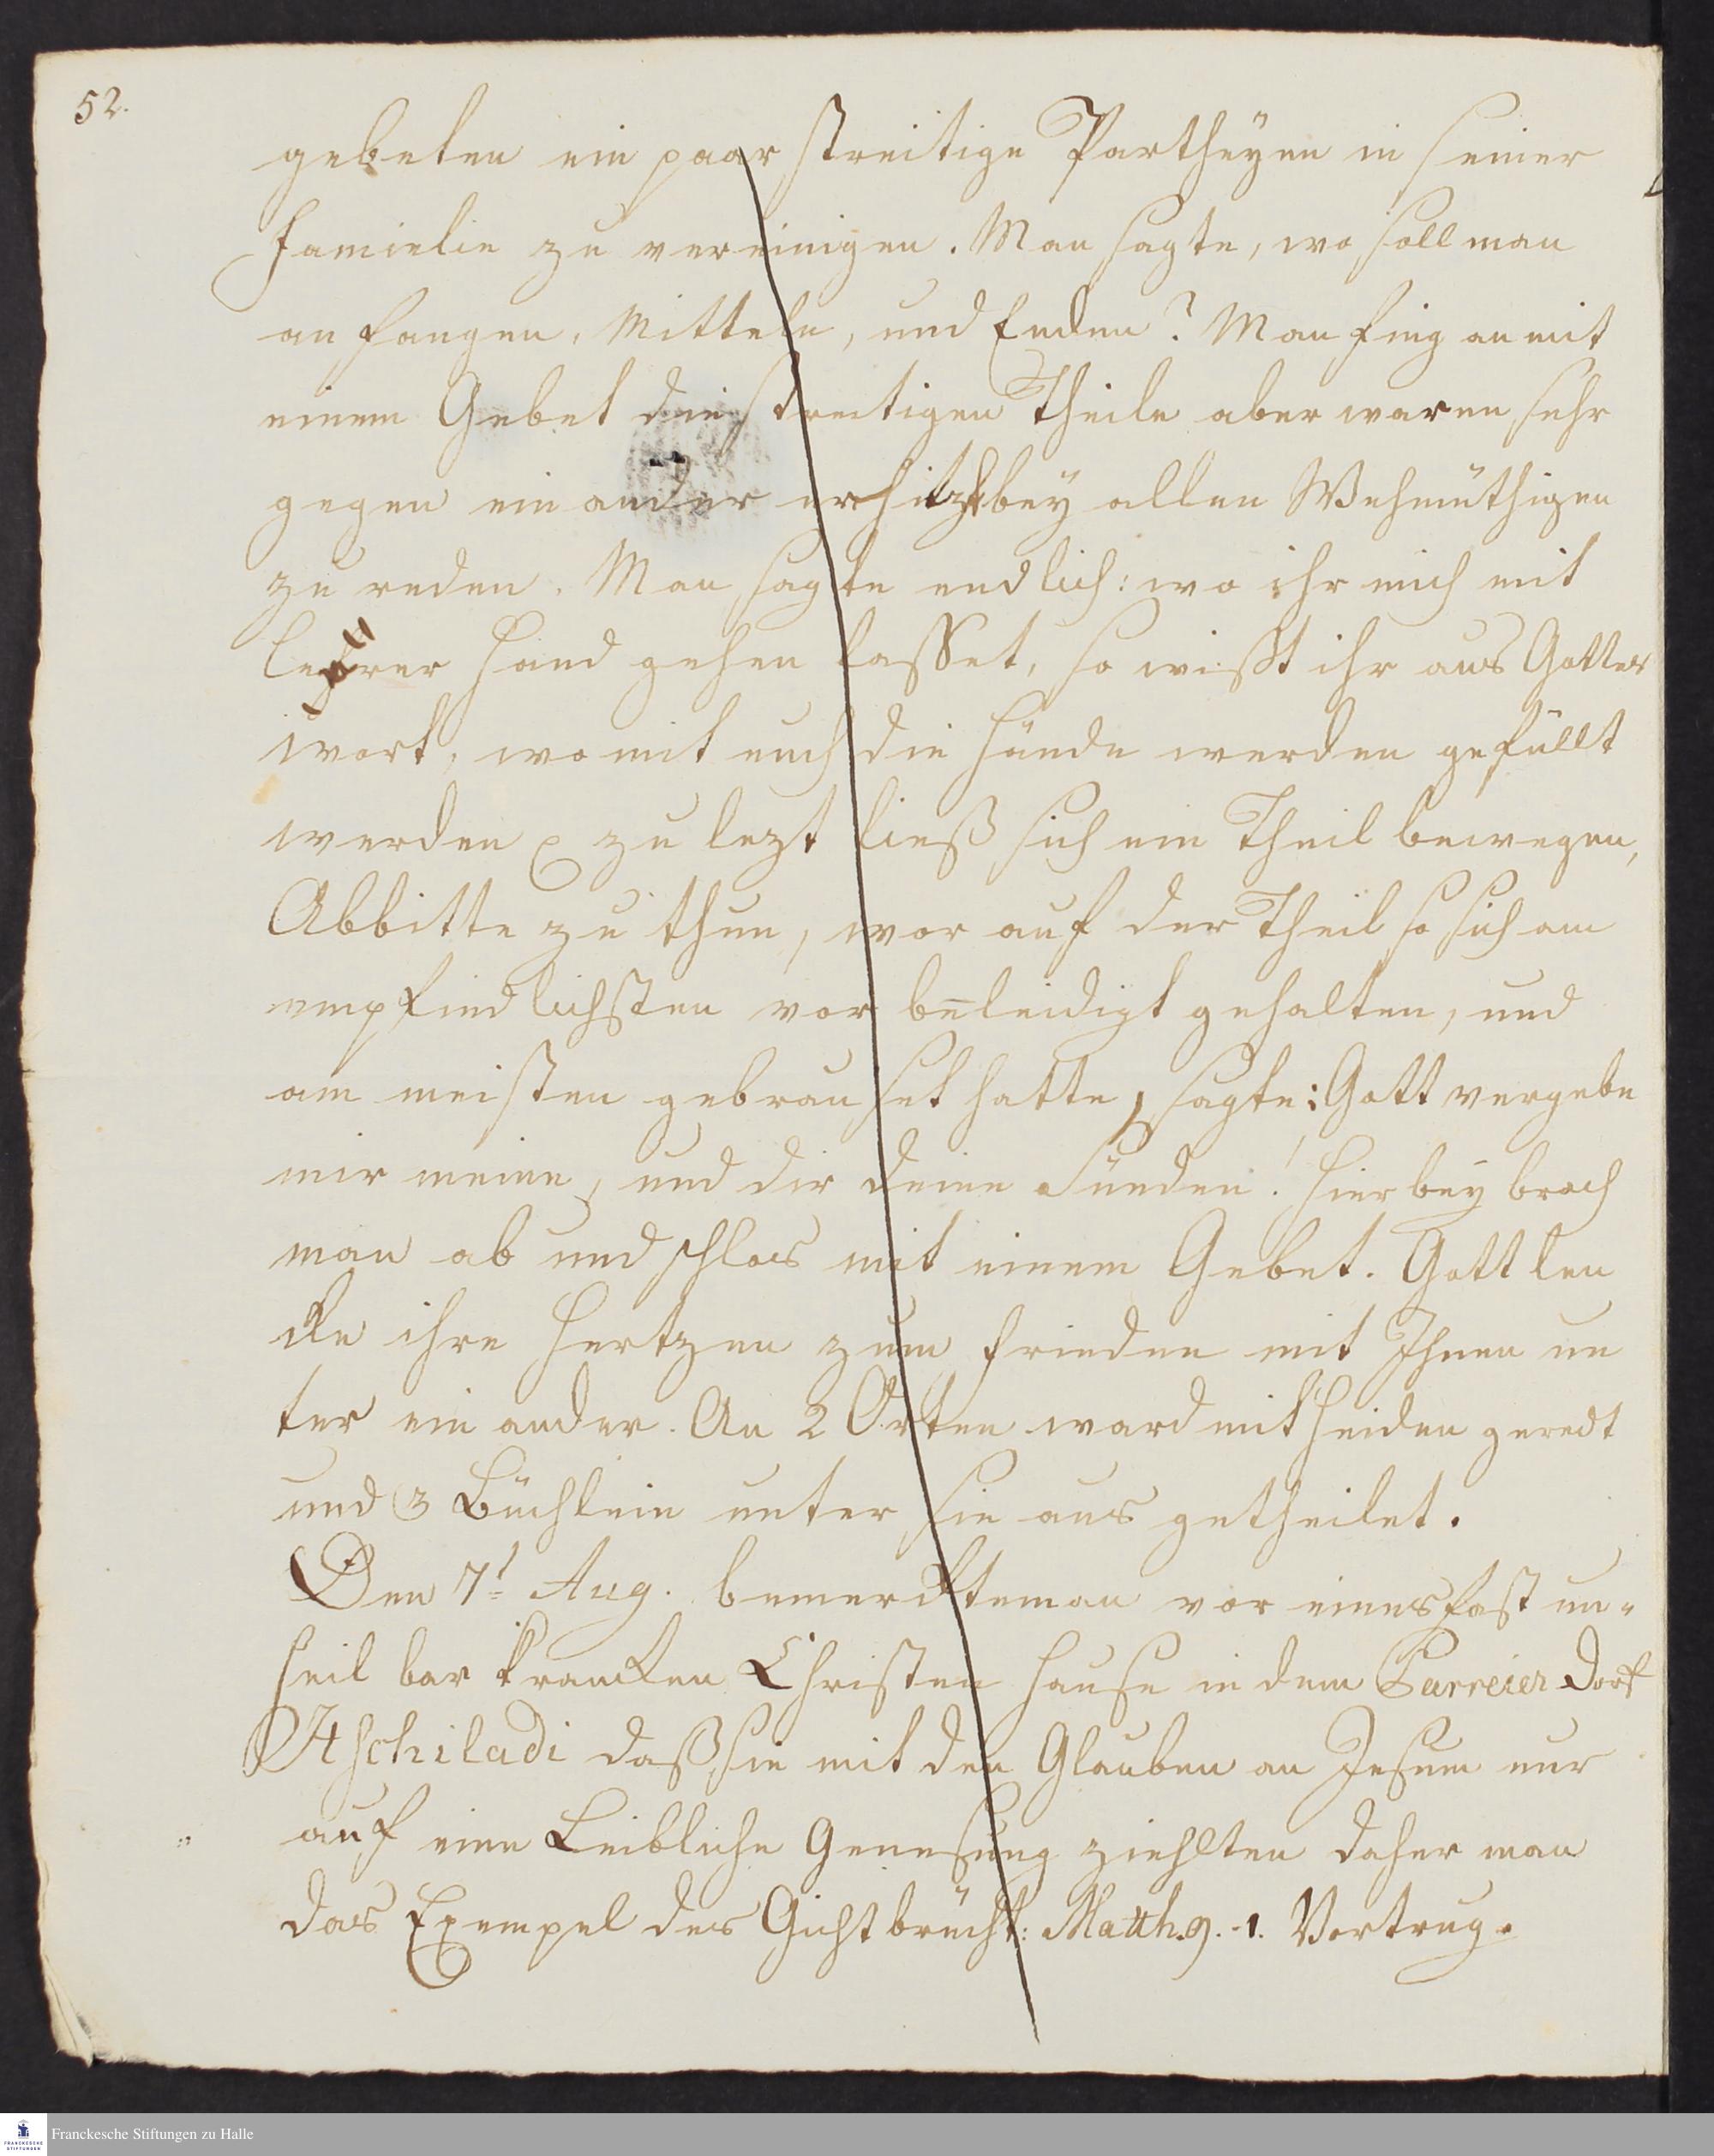 52.
gebeten ein paar streitige Partheyen in seiner
Familie zu vereinigen. Man sagte, wo soll man
an fangen, Mitteln, und Enden? Man fing an mit
einem Gebet die streitigen Theile aber waren sehr
gegen ein ander erhitzt bey allen Wehmüthigen
zu reden. Man sagte endlich: wo ihr mich mit
leerer Hand gehen lasset, so wißt ihr aus Gottes
wort, womit euch die Hände werden gefüllt
werden zu lezt ließ sich ein Theil bewegen,
Abbitte zu thun, wor auf der Theil so sich am
empfindlichsten vor beleidigt gehalten, und
am meisten gebrauset hatte, sagte: Gott vergebe
mir meine, und dir deine Sünden! Hierbey brach
man ab und schlos mit einem Gebet. Gott len
cke ihre Hertzen zum Frieden mit Ihnen un
ter ein ander. An 2 Orten ward mit Heiden geredt
und 3 Büchlein unter sie aus getheilet.
Den 7t Aug. bemerckte man vor eines fast un-
heil bar krancken Christen Hause in dem Parreier Dorf
Atschiladi daß sie mit den Glauben an Jesum nur
auf eine Leibliche Genesung ziehlten daher man
das Exempel des Gichtbrücht: Matth. 9. -1. Vortrug.
Franckesche Stiftungen zu Halle